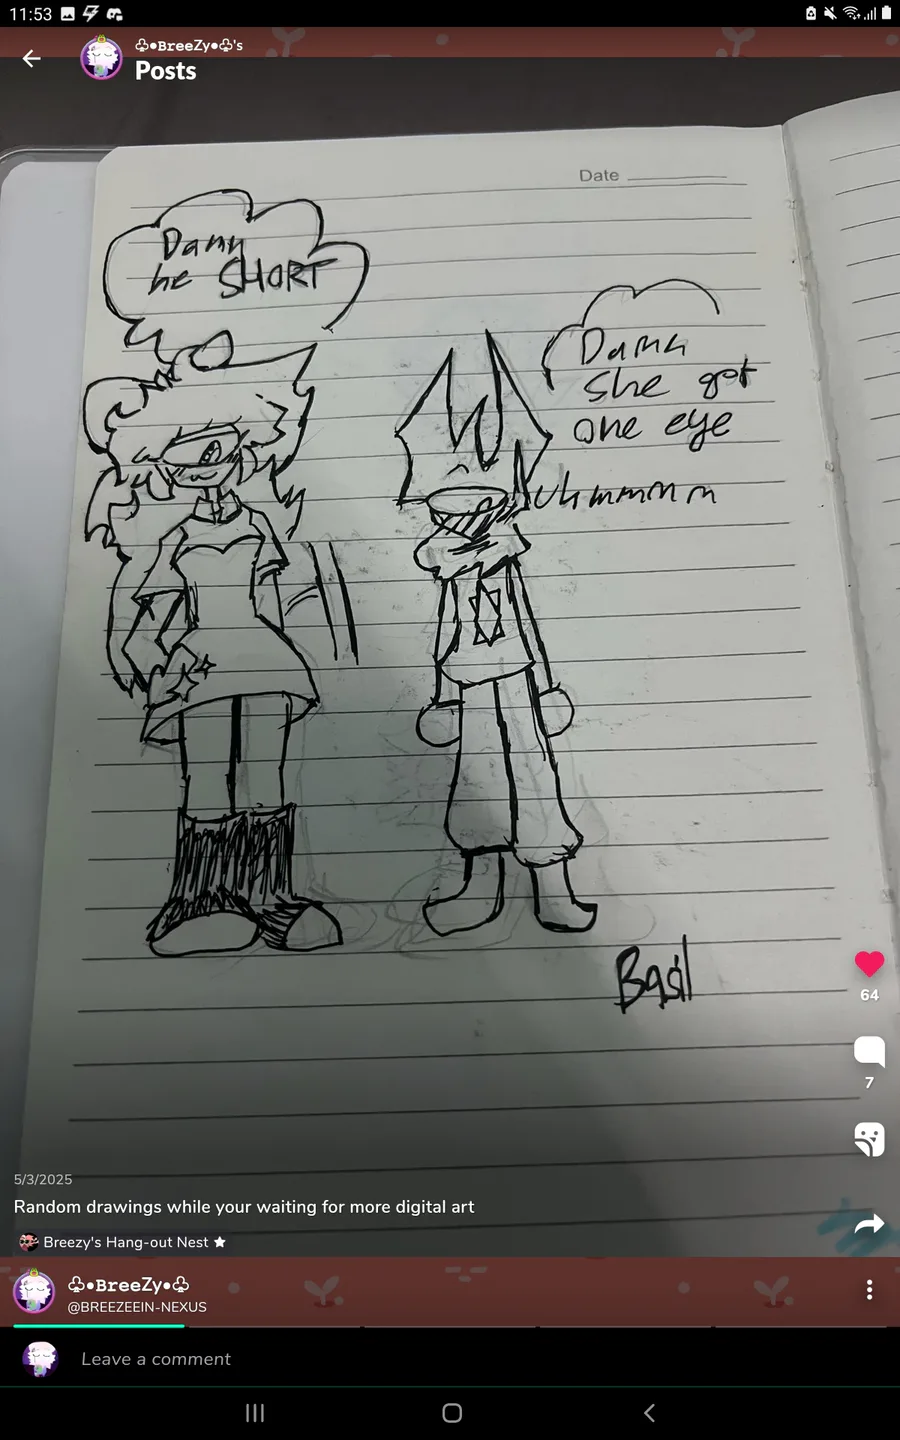 11:53
♧●BreeZy●♧'s
Posts
Date
Damn
he SHORT
Damn
she got
one eye
Uhmmmm
Basil
64
7
5/3/2025
Random drawings while your waiting for more digital art
Breezy's Hang-out Nest ★
♧●BreeZy●♧
@BREEZEEIN-NEXUS
Leave a comment